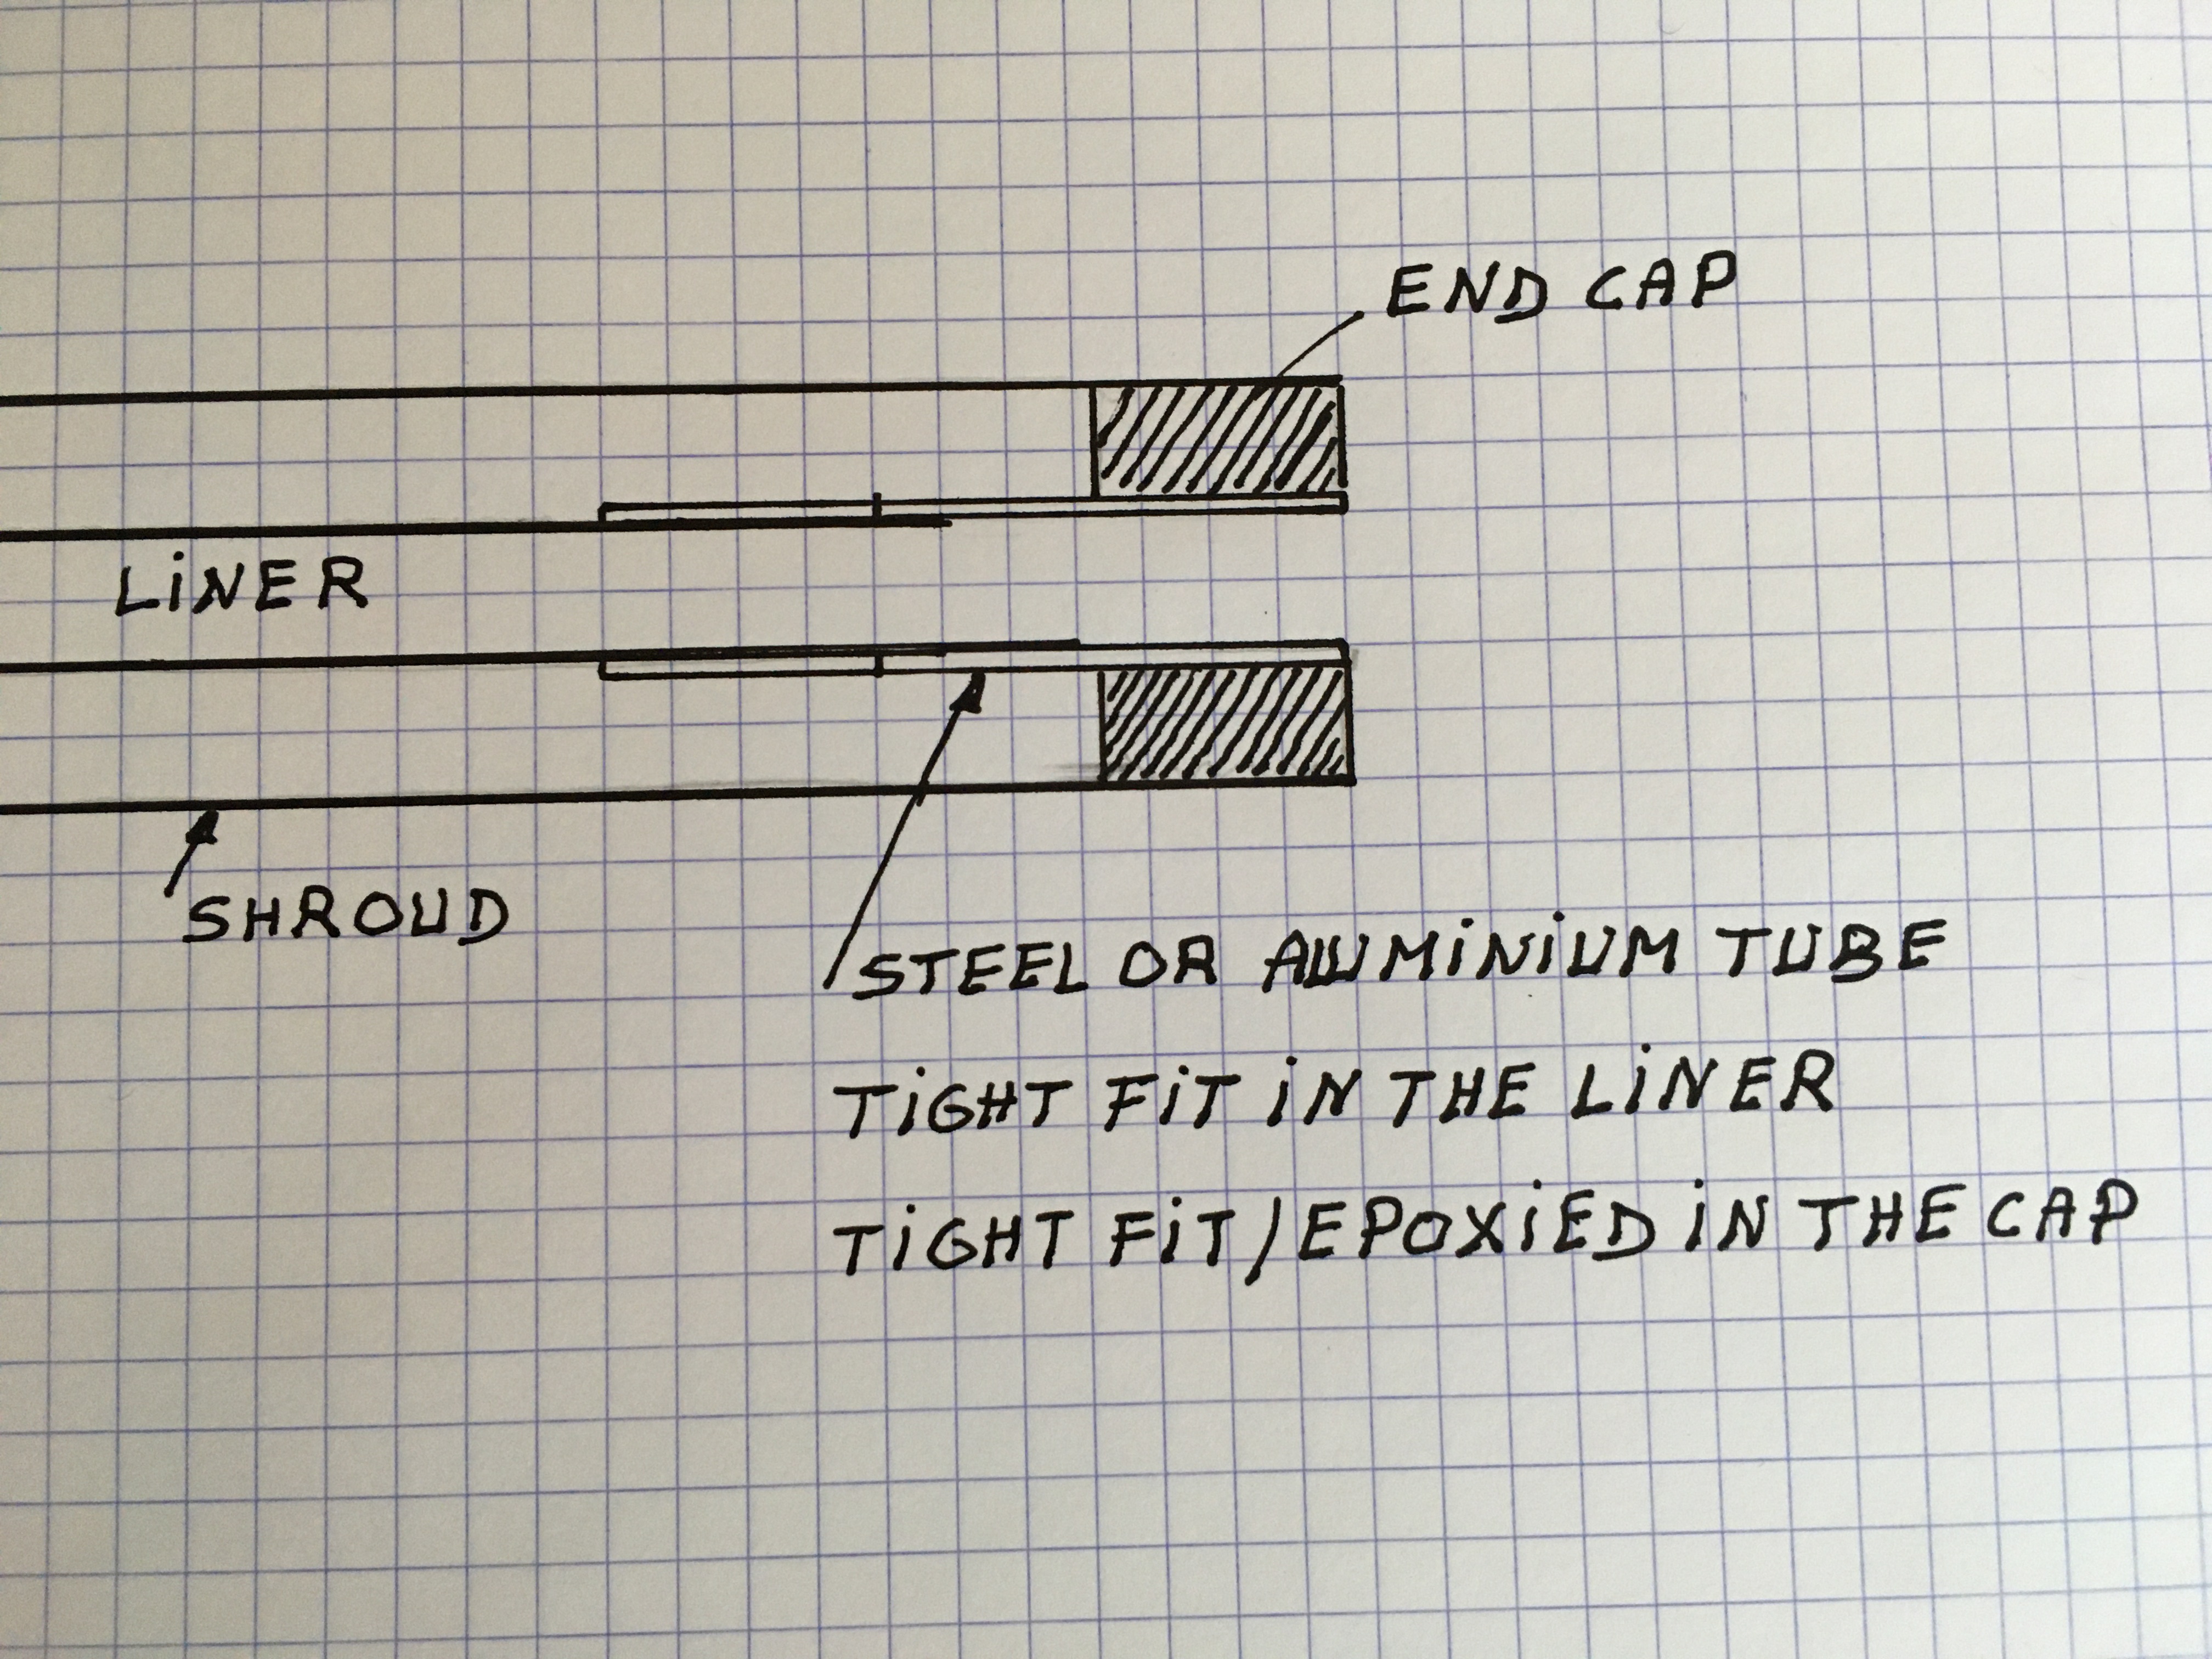 END CAP
LiNER
SHROUD
STEEL OR ALUMiNiUM TUBE
TiGHT FiT iN THE LiNER
TiGHT FiT/EPOXiED iN THE CAP